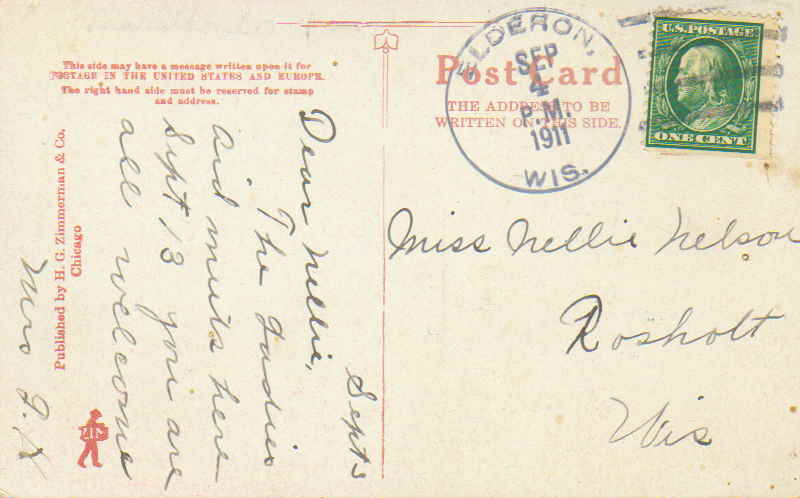 This side may have a message written upon it for
POSTAGE IN THE UNITED STATES AND EUROPE.
The right hand side must be reserved for stamp
and address.
Post Card
THE ADDRESS TO BE
WRITTEN ON THIS SIDE.
ELDERON,
SEP
4
P.M.
1911
WIS.
U.S. POSTAGE
ONE CENT
Sept 3
Dear Nellie,
The Ladies
Aid meets here
Sept 13 you are
all wellcome
Mrs
Published by H. G. Zimmerman & Co.
Chicago
Miss Nellie Nelson
Rosholt
Wis